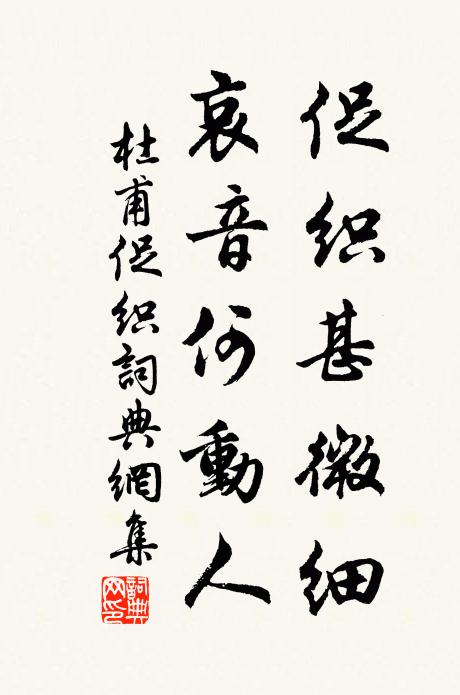 促织甚微细
哀音何動人
杜甫促织詞典網集
詞典网印